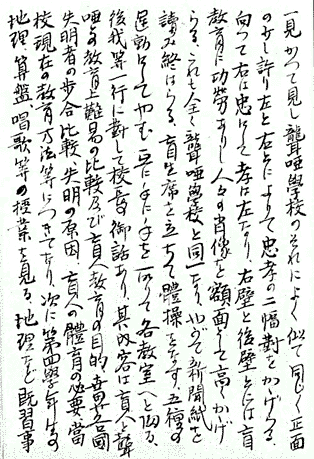 一見かつて見し聾唖學校のそれによく似て同じく正面
の少し許り左と右とによりて忠孝の二幅對をかけらる、
向つて右は忠にして孝は左なり、右壁と後壁とには盲
教育に功勞ありし人々の肖像を額面にして高くかけ
らる、これも全く聾唖學校と同一なり、やがて新聞紙を
讀み終はらる、盲生席を立ちて體操をなす、五種の
運動にしてやむ、互に手に手を取つて各教室へと歸る、
後我等一行に對して校長の御話あり、其内容は盲人と聾
唖との教育の難易の比較及び盲人教育の目的、世界各國
失明者の歩合比較、失明の原因、盲人の體育の必要、當
校現在の教育方法等につきてなり、次に第四學年生の
地理、算盤、唱歌等の授業を見る、地理など既習事